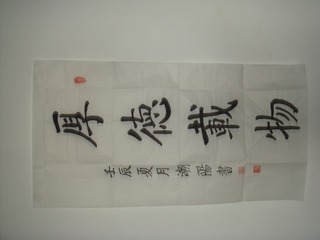 厚德載物
壬辰夏月潮陽書